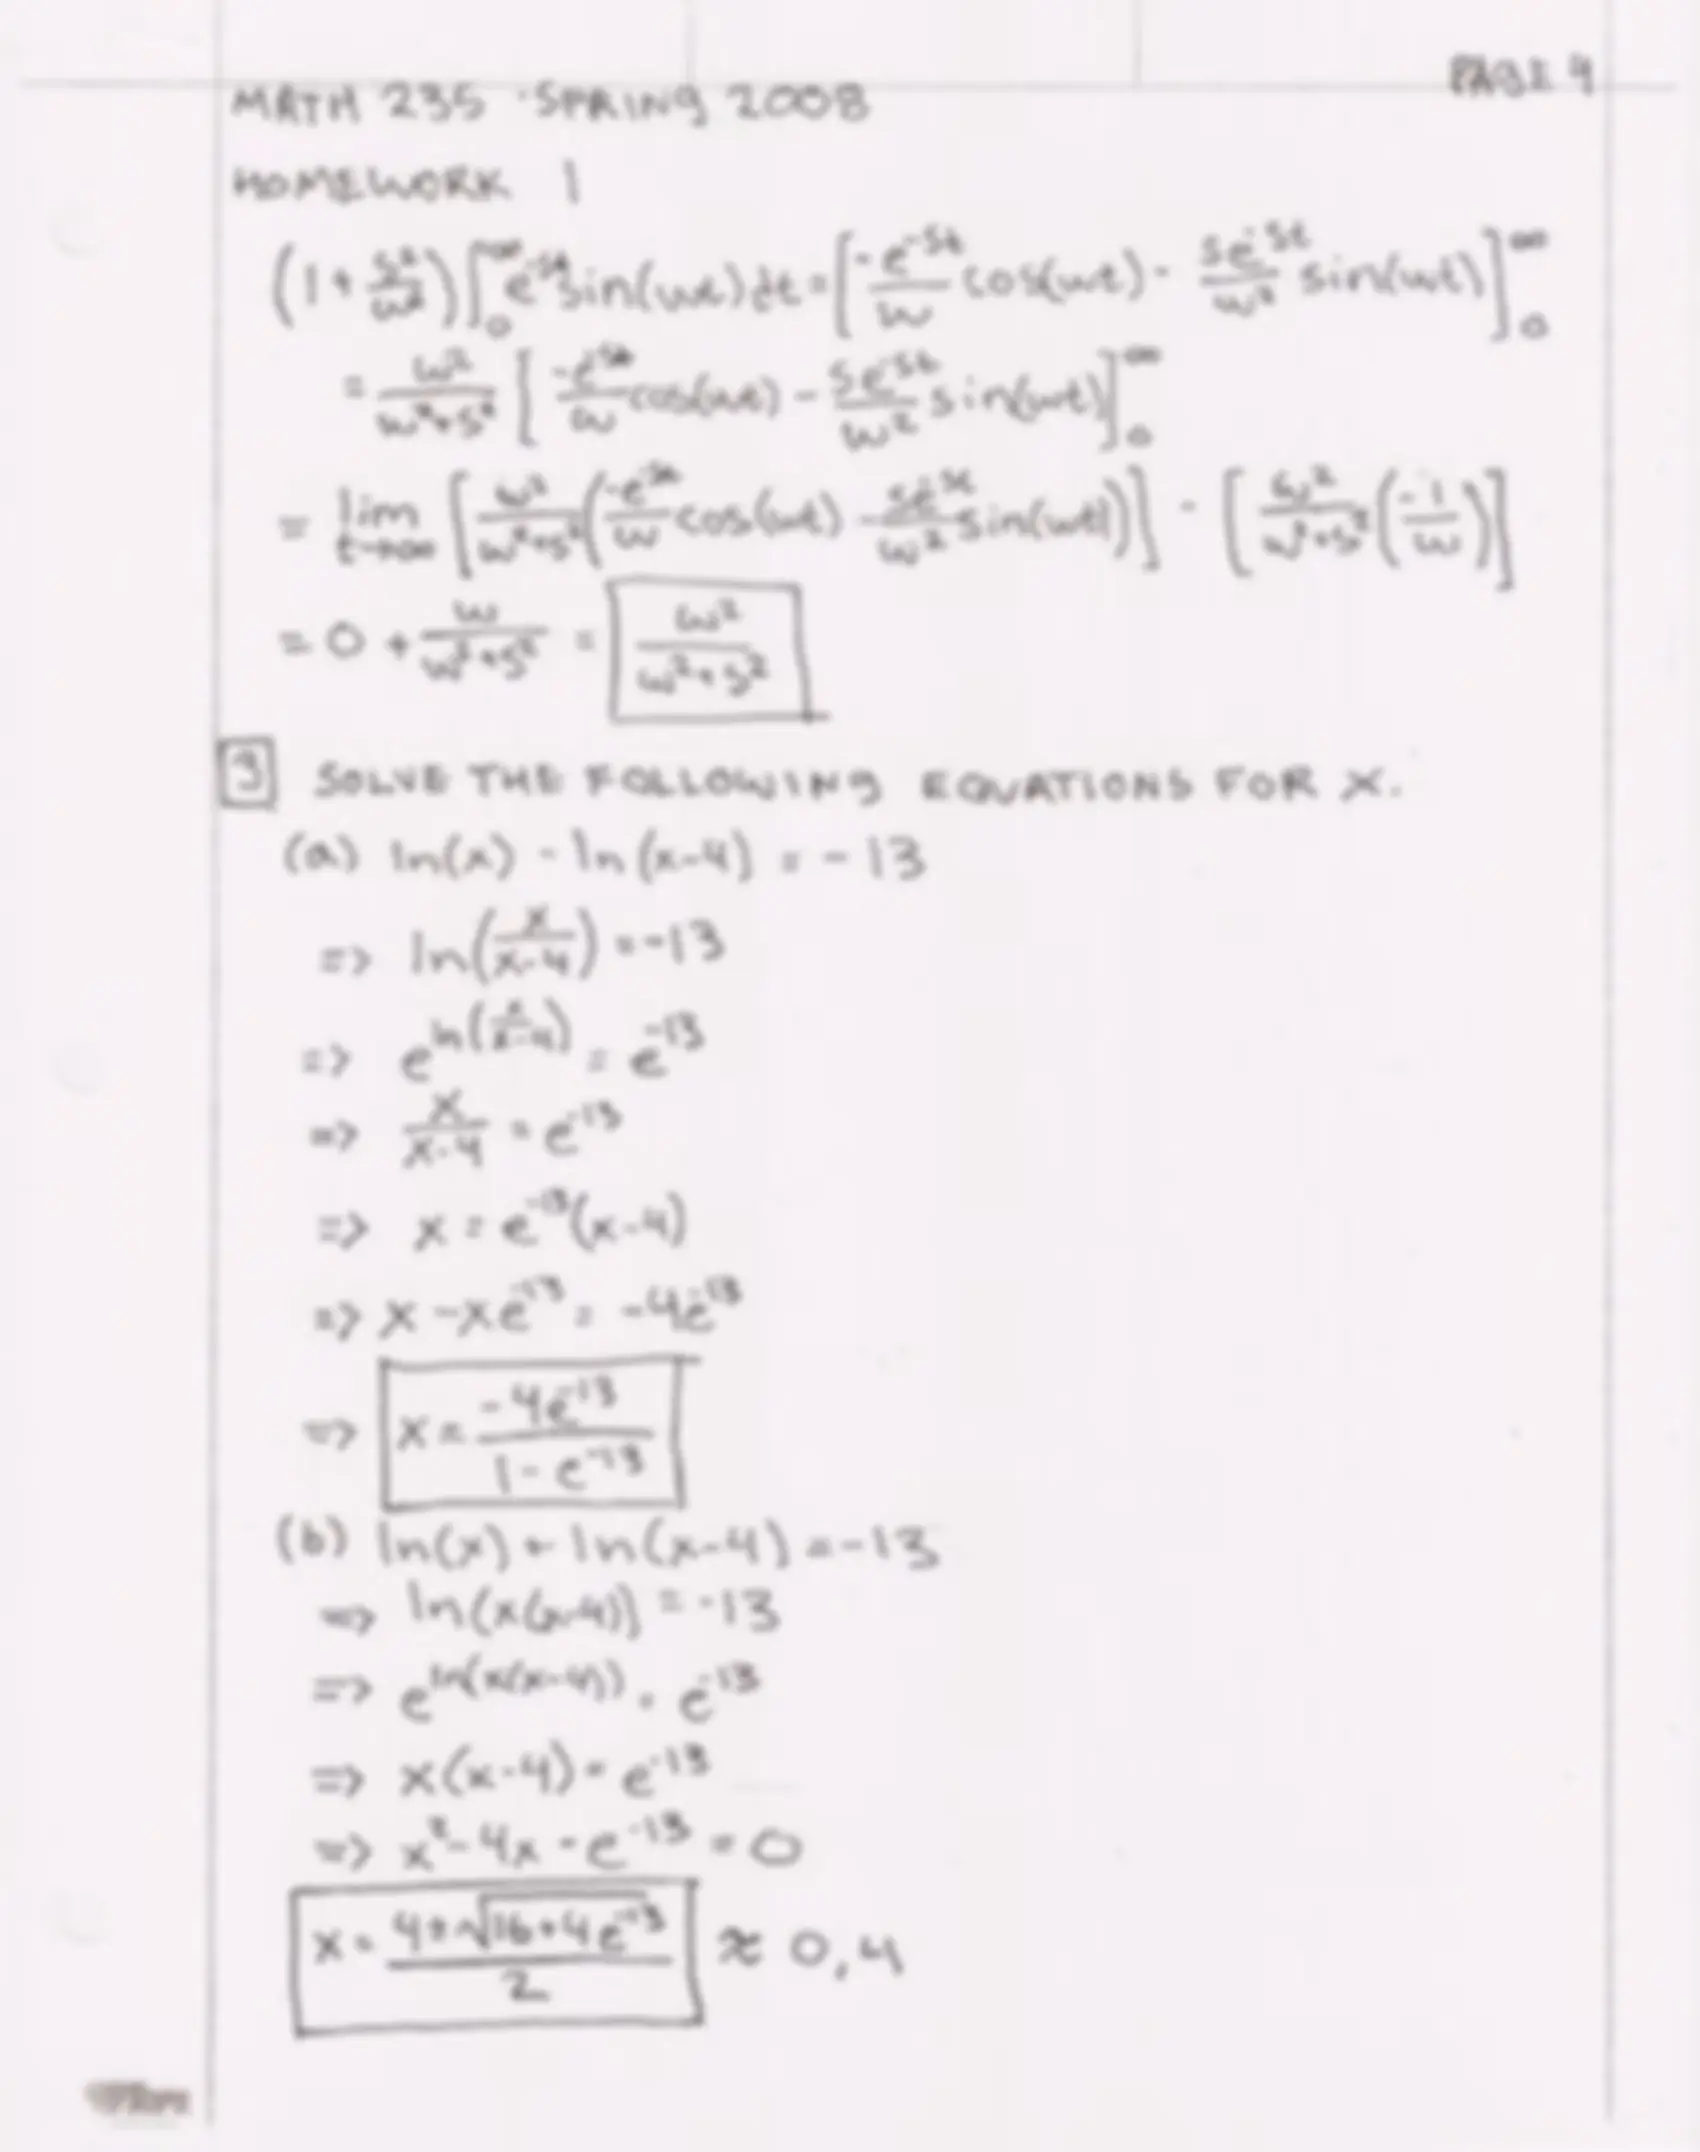 PAGE 4
MATH 235 - SPRING 2008
HOMEWORK 1
(1 + s²/w²) ∫₀^∞ e^-st sin(wt) dt = [-e^-st/w cos(wt) - se^-st/w² sin(wt)]₀^∞
= w²/(w²+s²) [-e^-st/w cos(wt) - se^-st/w² sin(wt)]₀^∞
= lim t→∞ [w²/(w²+s²) (-e^-st/w cos(wt) - se^-st/w² sin(wt))] - [w²/(w²+s²) (-1/w)]
= 0 + w/(w²+s²) = w²/(w²+s²)
3 SOLVE THE FOLLOWING EQUATIONS FOR X.
(a) ln(x) - ln(x-4) = -13
=> ln(x/(x-4)) = -13
=> e^ln(x/(x-4)) = e^-13
=> x/(x-4) = e^-13
=> x = e^-13(x-4)
=> x - xe^-13 = -4e^-13
=> x = -4e^-13/(1 - e^-13)
(b) ln(x) + ln(x-4) = -13
=> ln(x(x-4)) = -13
=> e^ln(x(x-4)) = e^-13
=> x(x-4) = e^-13
=> x² - 4x - e^-13 = 0
x = (4 ± √(16+4e^-13))/2 ≈ 0, 4